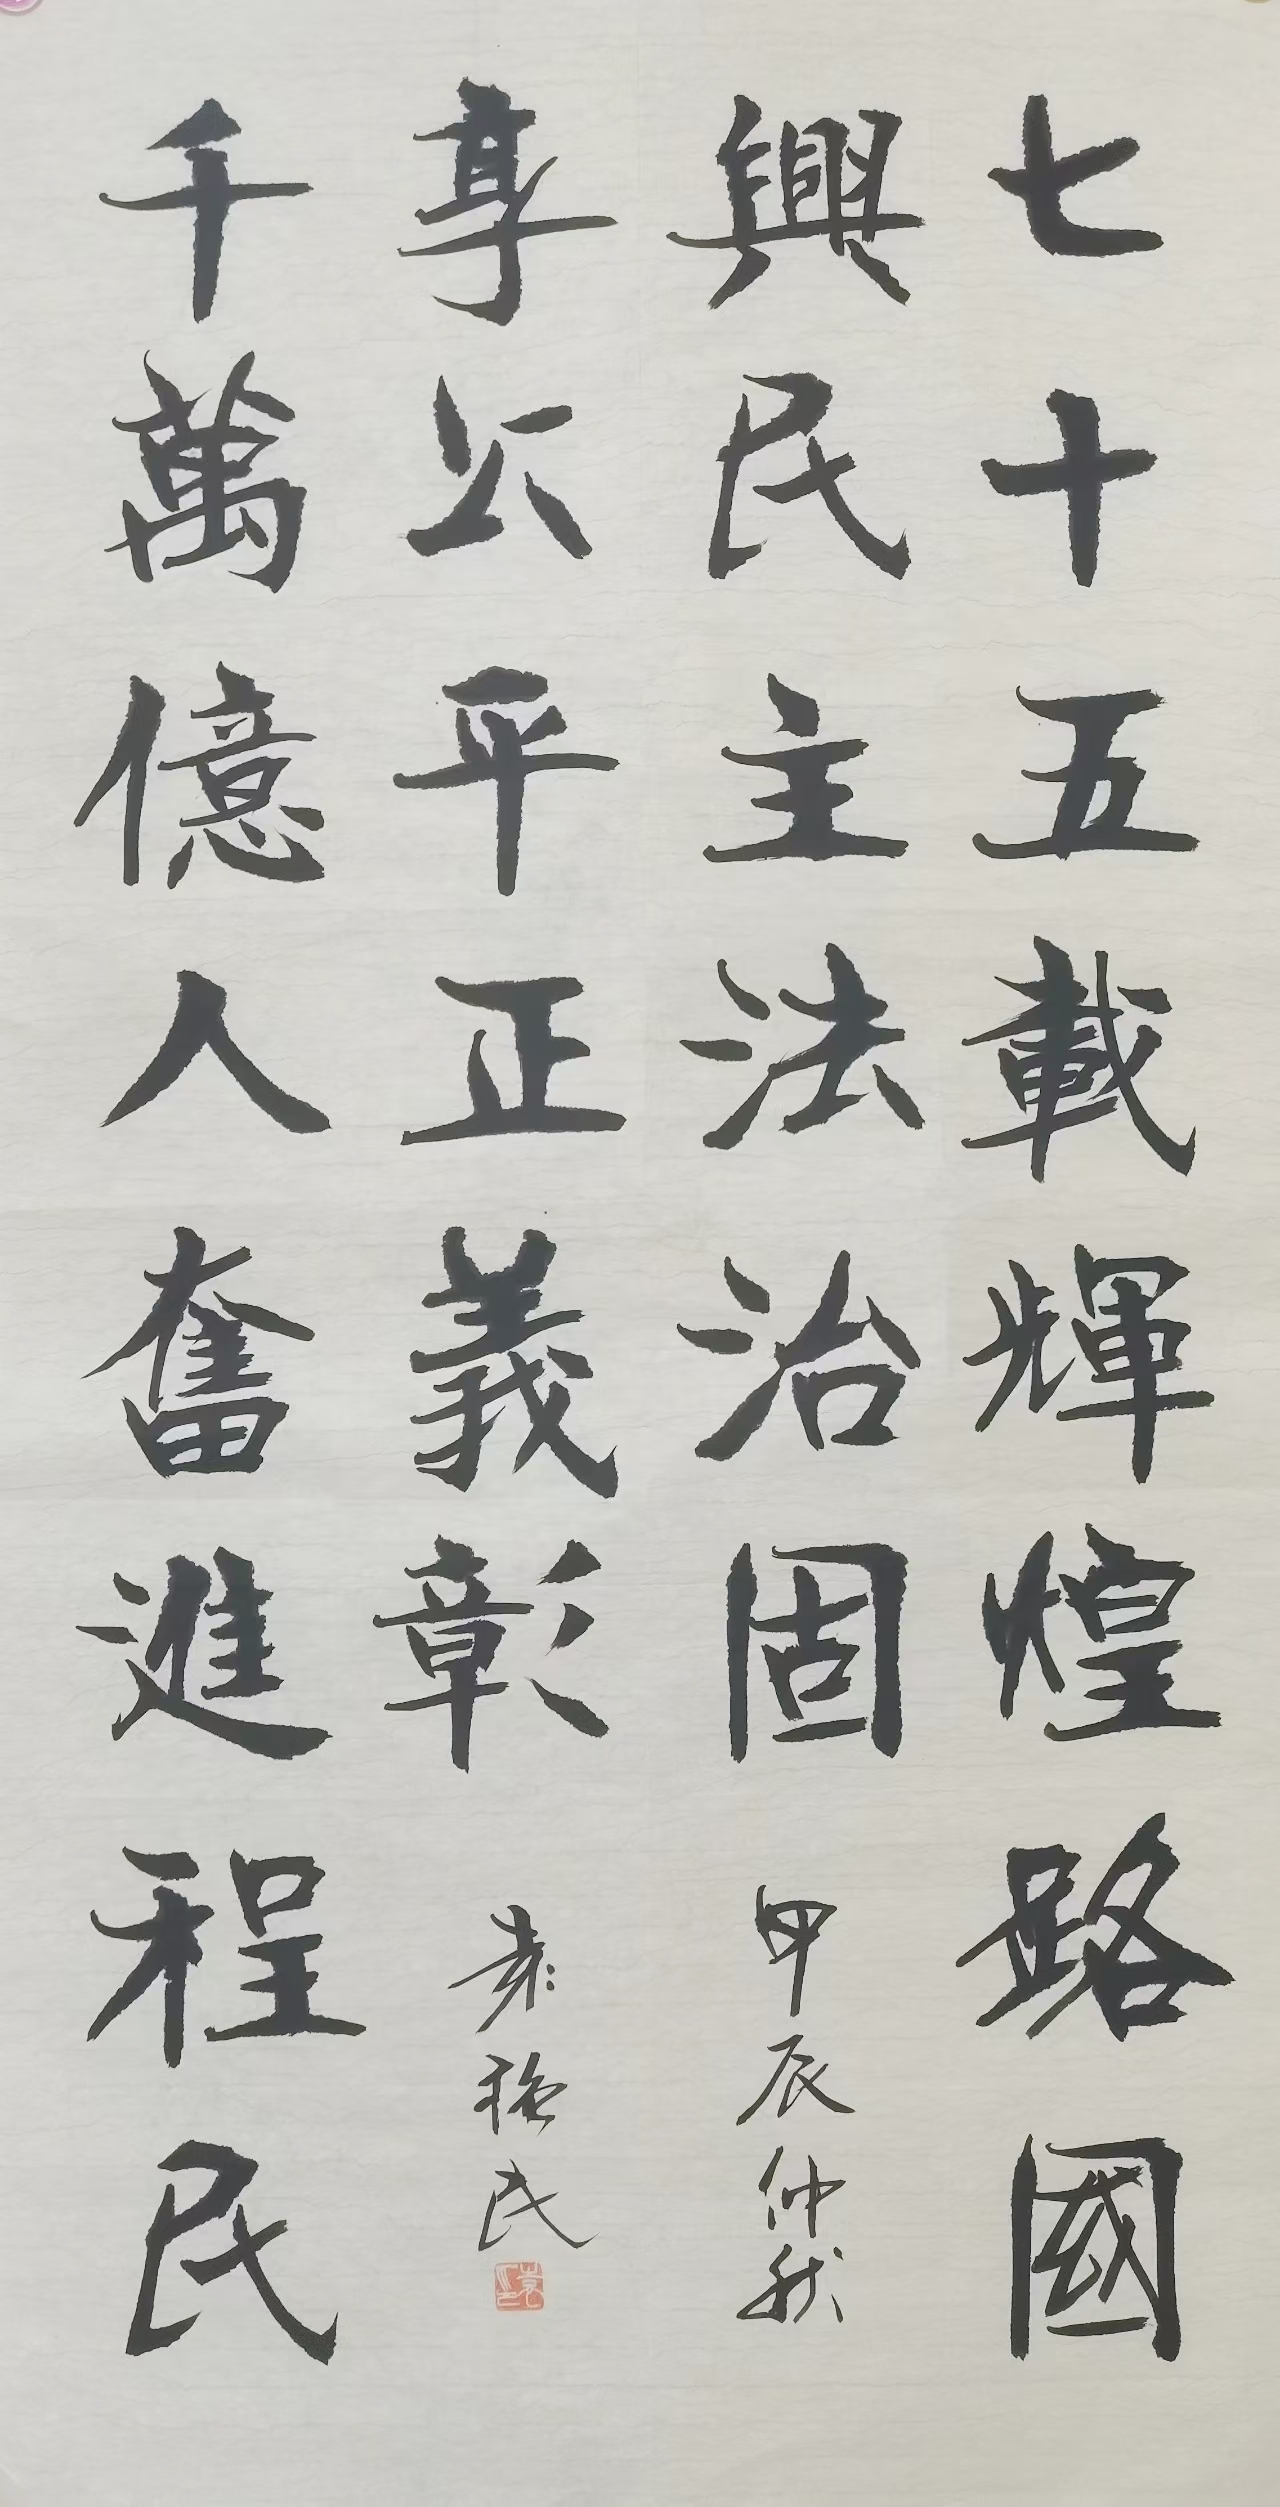 七十五載輝煌路國
興民主法治固
千萬億人奮進程民
享公平正義彰
甲辰仲秋
袁 民